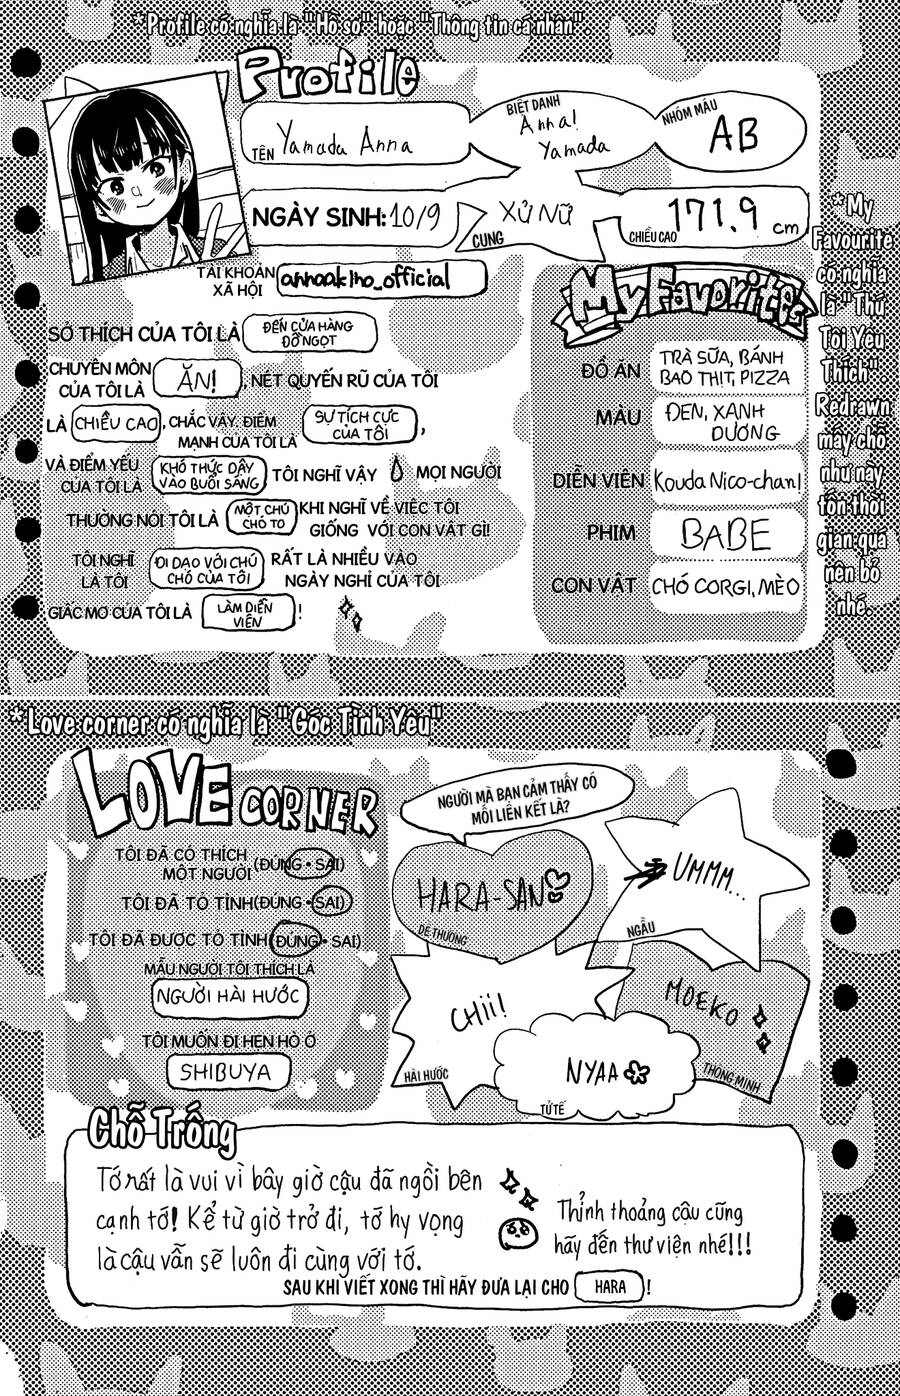 *Profile có nghĩa là "Hồ sơ" hoặc "Thông tin cá nhân".
Profile
TÊN Yamada Anna
BIỆT DANH
Anna!
Yamada
NHÓM MÁU
AB
NGÀY SINH: 10/9
XỬ NỮ
CUNG
171.9 cm
CHIỀU CAO
TÀI KHOẢN
XÃ HỘI
annaakino_official
SỞ THÍCH CỦA TÔI LÀ ĐẾN CỬA HÀNG
ĐỒ NGỌT
CHUYÊN MÔN
CỦA TÔI LÀ ĂN!, NÉT QUYẾN RŨ CỦA TÔI
LÀ CHIỀU CAO, CHẮC VẬY. ĐIỂM
MẠNH CỦA TÔI LÀ SỰ TÍCH CỰC
CỦA TÔI,
VÀ ĐIỂM YẾU
CỦA TÔI LÀ KHÓ THỨC DẬY
VÀO BUỔI SÁNG, TÔI NGHĨ VẬY MỌI NGƯỜI
THƯỜNG NÓI TÔI LÀ MỘT CHÚ
CHÓ TO KHI NGHĨ VỀ VIỆC TÔI
GIỐNG VỚI CON VẬT GÌ!
TÔI NGHĨ
LÀ TÔI ĐI DẠO VỚI CHÚ
CHÓ CỦA TÔI RẤT LÀ NHIỀU VÀO
NGÀY NGHỈ CỦA TÔI
GIẤC MƠ CỦA TÔI LÀ LÀM DIỄN
VIÊN!
My Favorite
ĐỒ ĂN
TRÀ SỮA, BÁNH
BAO THỊT, PIZZA
MÀU
ĐEN, XANH
DƯƠNG
DIỄN VIÊN Kouda Nico-chan!
PHIM BABE
CON VẬT CHÓ CORGI, MÈO
*My
Favourite
có nghĩa
là "Thứ
Tôi Yêu
Thích"
Redrawn
mấy chỗ
như này
tốn thời
gian quá
nên bỏ
nhé.
*Love corner có nghĩa là "Góc Tình Yêu"
LOVE CORNER
TÔI ĐÃ CÓ THÍCH
MỘT NGƯỜI (ĐÚNG • SAI)
TÔI ĐÃ TỎ TÌNH (ĐÚNG • SAI)
TÔI ĐÃ ĐƯỢC TỎ TÌNH (ĐÚNG • SAI)
MẪU NGƯỜI TÔI THÍCH LÀ
NGƯỜI HÀI HƯỚC
TÔI MUỐN ĐI HẸN HÒ Ở
SHIBUYA
NGƯỜI MÀ BẠN CẢM THẤY CÓ
MỐI LIÊN KẾT LÀ?
HARA-SAN
DỄ THƯƠNG
UMMM...
NGẦU
CHii!
HÀI HƯỚC
MOEKO
THÔNG MINH
NYAA
TỬ TẾ
Chỗ Trống
Tớ rất là vui vì bây giờ cậu đã ngồi bên
cạnh tớ! Kể từ giờ trở đi, tớ hy vọng
là cậu vẫn sẽ luôn đi cùng với tớ.
Thỉnh thoảng cậu cũng
hãy đến thư viện nhé!!!
SAU KHI VIẾT XONG THÌ HÃY ĐƯA LẠI CHO HARA!